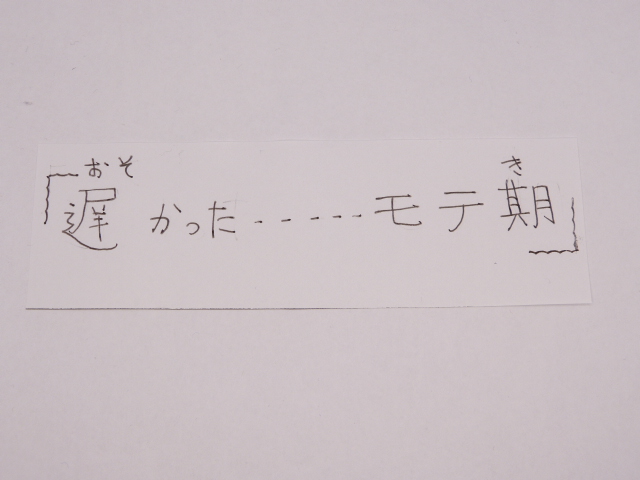 おそ き
「遅かった.....モテ期」